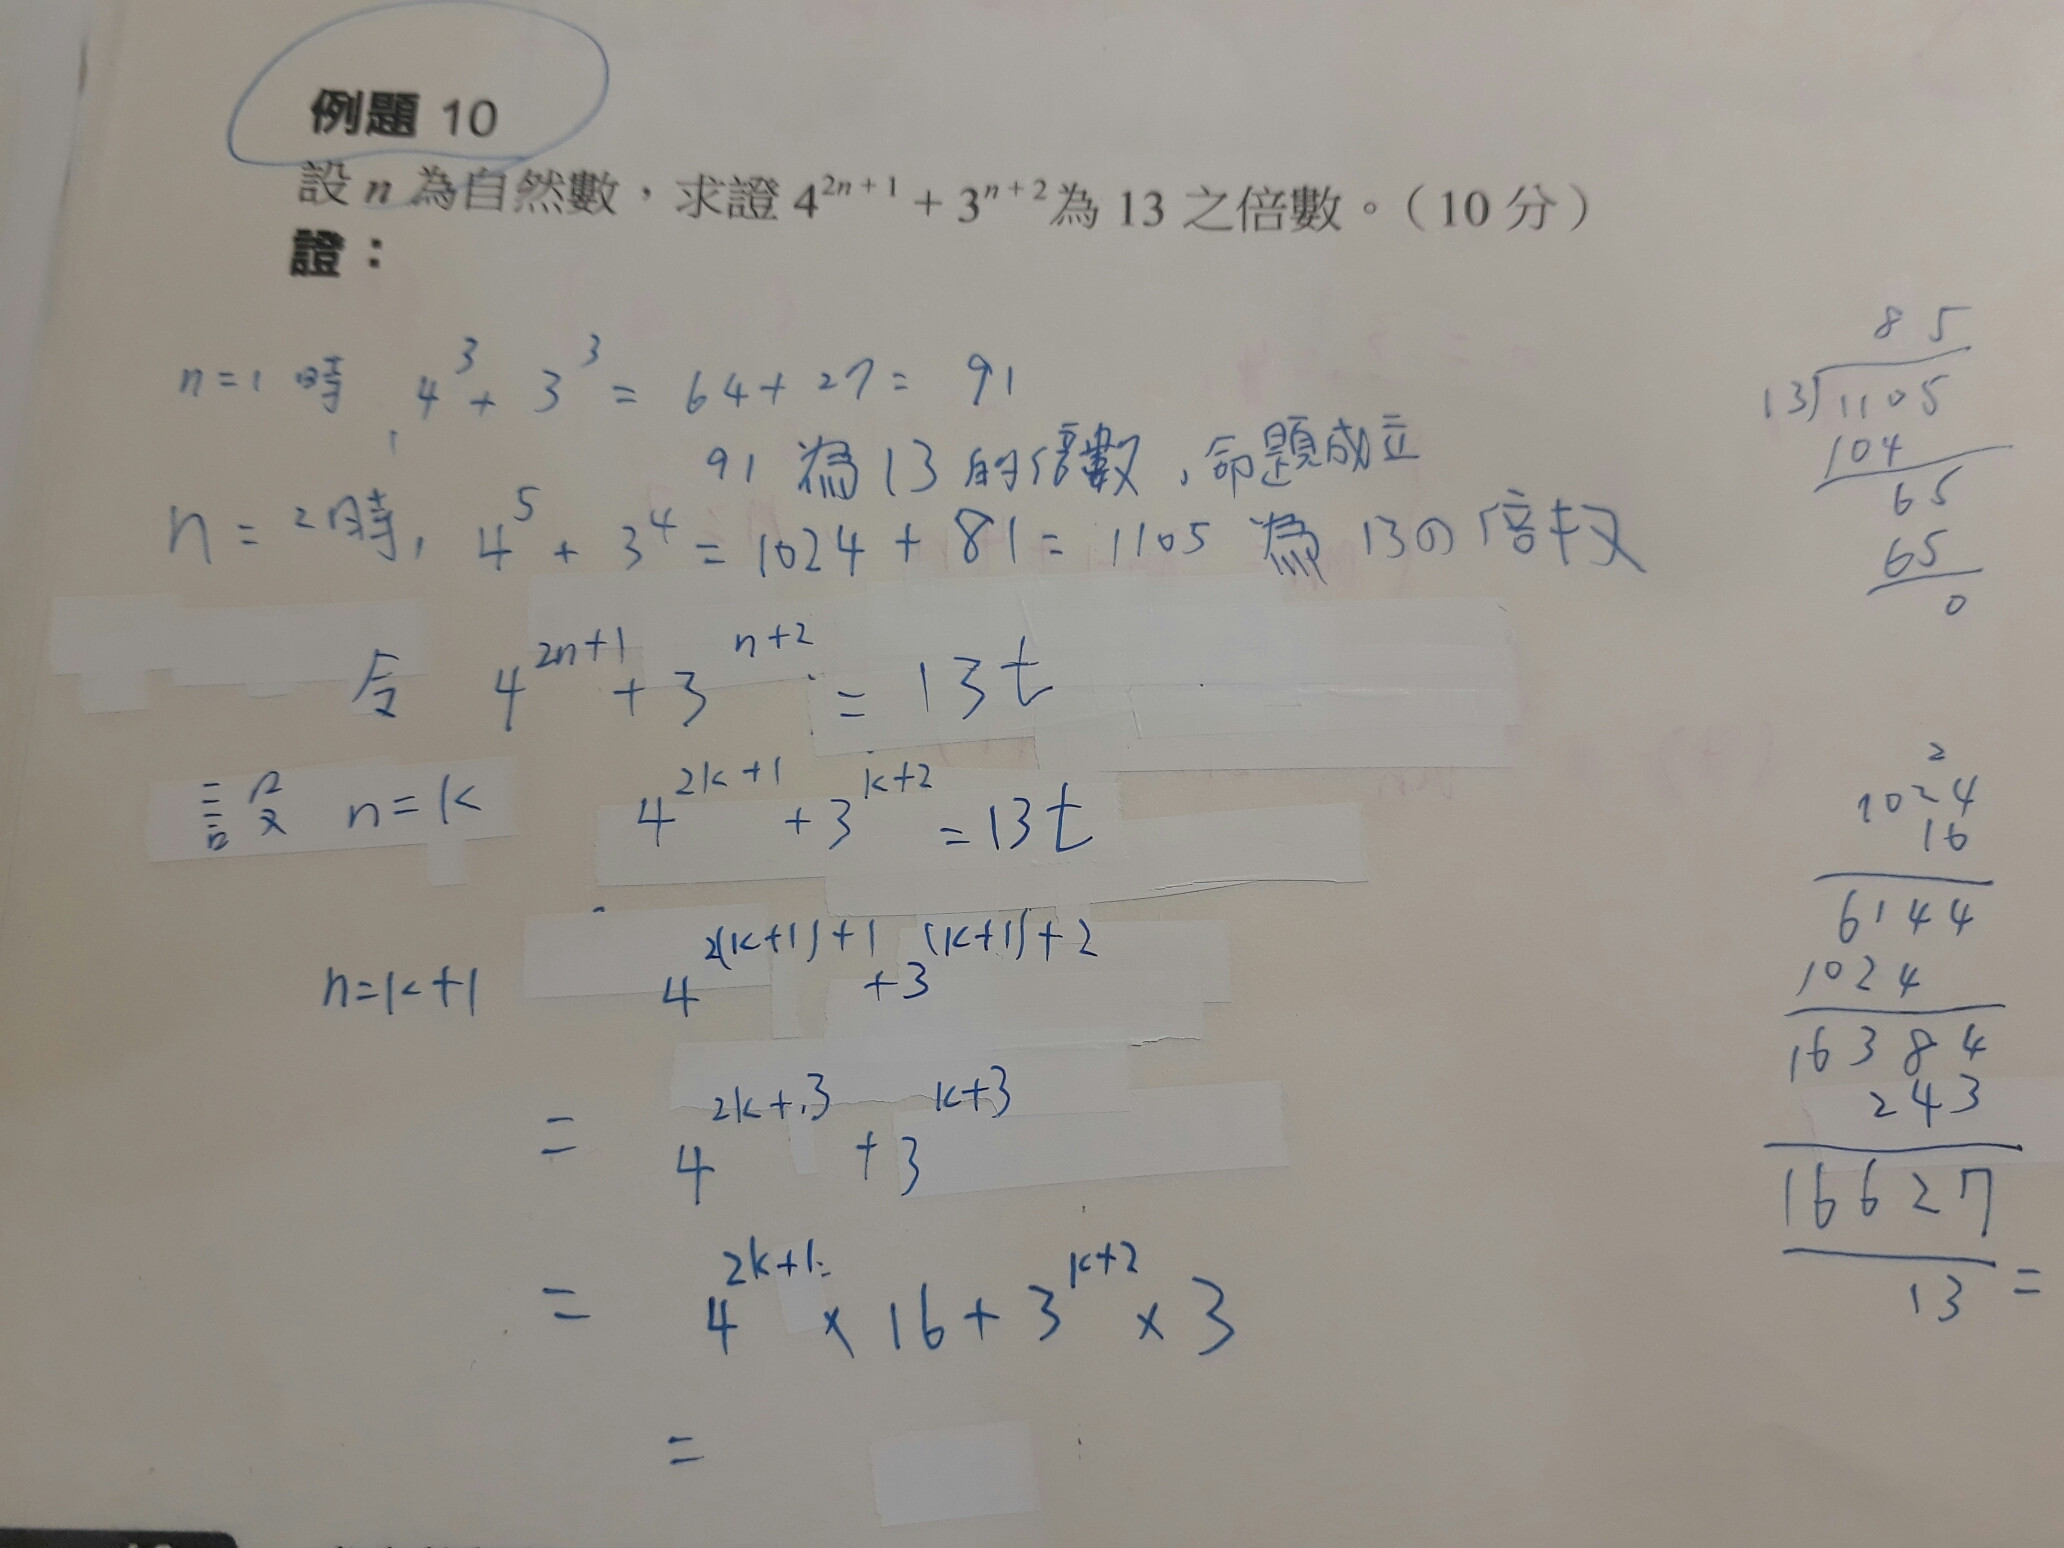 例題 10
設 n 為自然數，求證 4^{2n+1} + 3^{n+2} 為 13 之倍數。（10 分）
證：
n=1 時, 4^3 + 3^3 = 64 + 27 = 91
91 為 13 的倍數，命題成立
n = 2 時, 4^5 + 3^4 = 1024 + 81 = 1105 為 13の倍数
令 4^{2n+1} + 3^{n+2} = 13t
設 n=k 4^{2k+1} + 3^{k+2} = 13t
n=k+1 4^{2(k+1)+1} + 3^{(k+1)+2}
= 4^{2k+3} + 3^{k+3}
= 4^{2k+1} × 16 + 3^{k+2} × 3
=
85
13)1105
104
65
65
0
2
1024
16
6144
1024
16384
243
16627
13 =